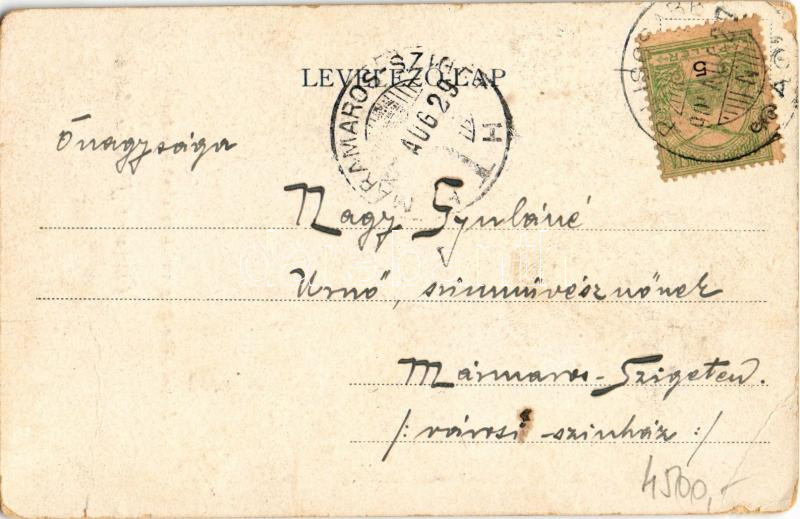 LEVELEZŐ-LAP
MÁRAMAROS-SZIGET
AUG 29
5
Őnagysága
Nagy Gyuláné
Urnő, színművésznőnek
Mármaros-Szigeten.
/: városi színház :/
4500,-